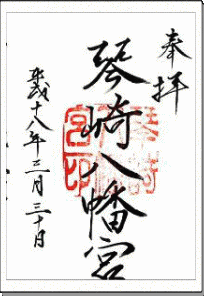 奉拝
琴崎八幡宮
平成十八年三月三十日
琴崎
宮印